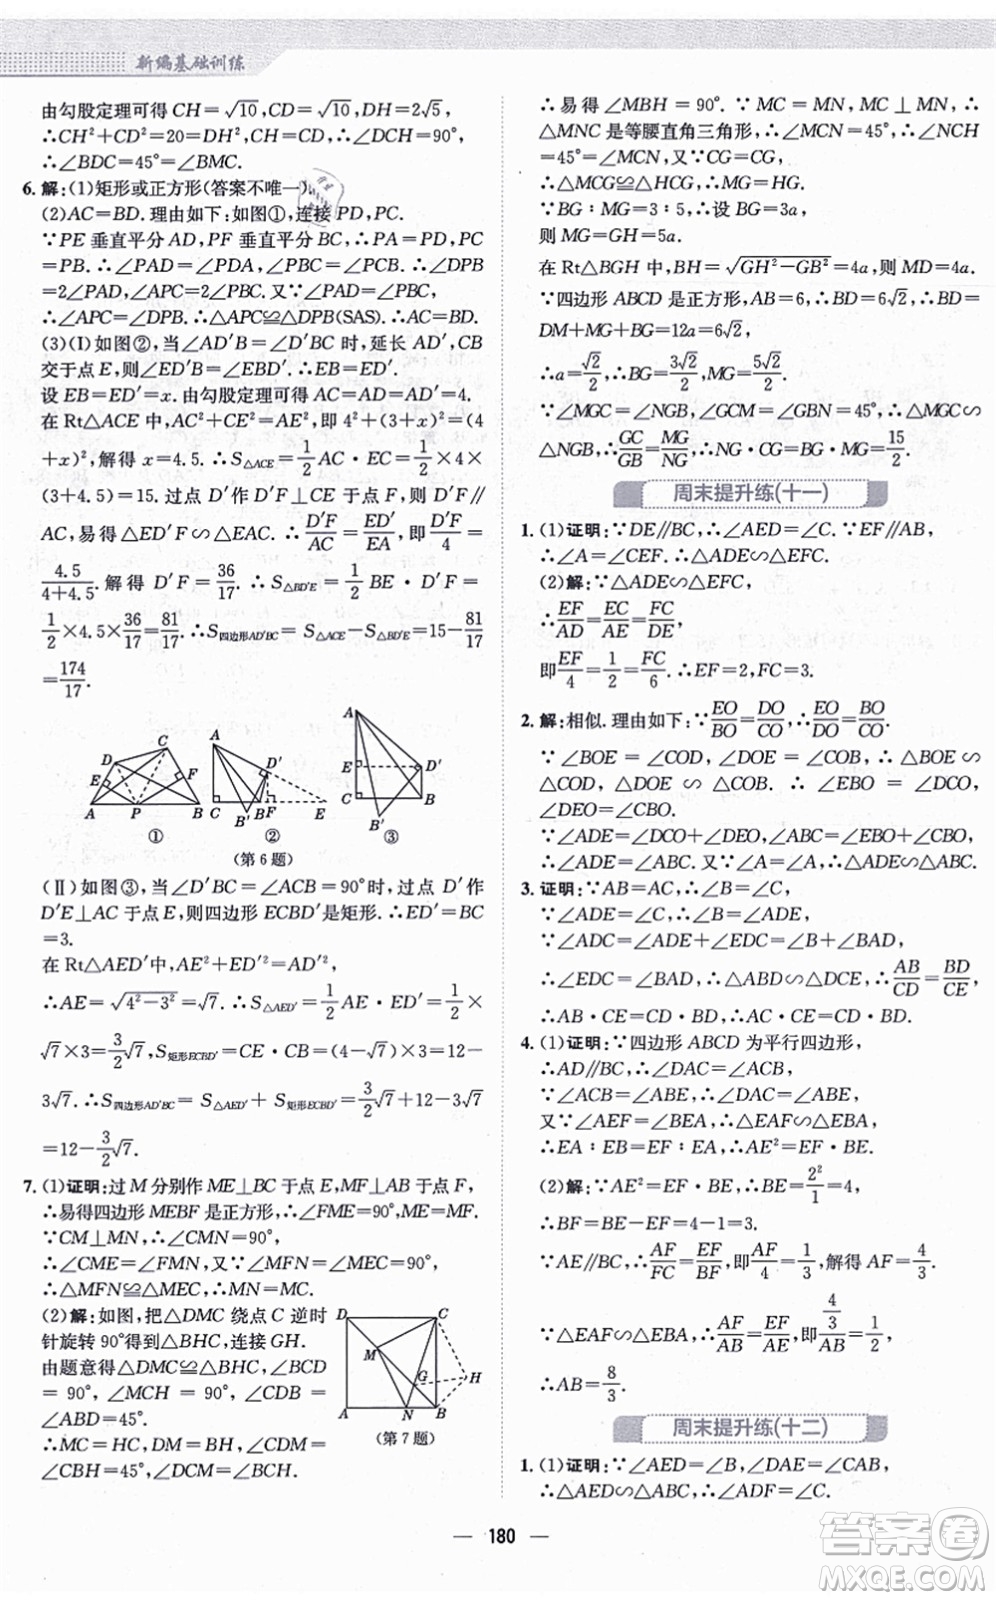 新编基础训练
由勾股定理可得CH=√10,CD=√10,DH=2√5,
∴CH²+CD²=20=DH²,CH=CD,∴∠CDH=90°,
∴∠BDC=45°=∠BMC.
6.解:(1)矩形或正方形(答案不唯一)
(2)AC=BD.理由如下:如图①,连接PD,PC.
∵PE垂直平分AD,PF垂直平分BC,∴PA=PD,PC
=PB.∴∠PAD=∠PDA,∠PBC=∠PCB.∴∠DPB
=2∠PAD,∠APC=2∠PBC.又∵∠PAD=∠PBC,
∴∠APC=∠DPB.∴△APC≌△DPB(SAS).∴AC=BD.
(3)(Ⅰ)如图②,当∠AD′B=∠D′BC时,延长AD′,CB
交于点E,则∠EBD′=∠ED′B.∴EB=ED′.
设EB=ED′=x.由勾股定理可得AC=AD=AD′=4.
在Rt△ACE中,AC²+CE²=AE²,即4²+(3+x)²=(4
+x)²,解得x=4.5.∴S△ACE=1/2AC·EC=1/2×4×
(3+4.5)=15.过点D′作D′F⊥CE于点F,则D′F∥
AC,易得△ED′F∽△EAC.∴D′F/AC=ED′/EA,即D′F/4=
4.5/(4+4.5).解得D′F=36/17.∴S△BD′E=1/2BE·D′F=
1/2×4.5×36/17=81/17.∴S四边形AD′BC=S△ACE−S△BD′E=15−81/17
=174/17.
A E D C F P B
①
A D′ C B′ B F E
②
A E D′ C B B′
③
(第6题)
(Ⅱ)如图③,当∠D′BC=∠ACB=90°时,过点D′作
D′E⊥AC于点E,则四边形ECBD′是矩形.∴ED′=BC
=3.
在Rt△AED′中,AE²+ED′²=AD′²,
∴AE=√(4²−3²)=√7.∴S△AED′=1/2AE·ED′=1/2×
√7×3=3/2√7,S矩形ECBD′=CE·CB=(4−√7)×3=12−
3√7.∴S四边形AD′BC=S△AED′+S矩形ECBD′=3/2√7+12−3√7
=12−3/2√7.
7.(1)证明:过M分别作ME⊥BC于点E,MF⊥AB于点F,
∴易得四边形MEBF是正方形,∴∠FME=90°,ME=MF.
∵CM⊥MN,∴∠CMN=90°,
∴∠CME=∠FMN,又∵∠MFN=∠MEC=90°,
∴△MFN≌△MEC,∴MN=MC.
(2)解:如图,把△DMC绕点C逆时
针旋转90°得到△BHC,连接GH.
由题意得△DMC≌△BHC,∠BCD
=90°,∠MCH=90°,∠CDB=
∠ABD=45°.
∴MC=HC,DM=BH,∠CDM=
∠CBH=45°,∠DCM=∠BCH.
D C M G H A N B
(第7题)
∴易得∠MBH=90°.∵MC=MN,MC⊥MN,∴
△MNC是等腰直角三角形,∴∠MCN=45°,∴∠NCH
=45°,∴∠NCH=∠MCN,又∵CG=CG,
∴△MCG≌△HCG,∴MG=HG.
∵BG∶MG=3∶5,∴设BG=3a,
则MG=GH=5a.
在Rt△BGH中,BH=√(GH²−GB²)=4a,则MD=4a.
∵四边形ABCD是正方形,AB=6,∴BD=6√2,∴BD=
DM+MG+BG=12a=6√2,
∴a=√2/2,∴BG=3√2/2,MG=5√2/2.
∵∠MGC=∠NGB,∠GCM=∠GBN=45°,∴△MGC∽
△NGB,∴GC/GB=MG/NG,∴CG·NG=BG·MG=15/2.
周末提升练(十一)
1.(1)证明:∵DE∥BC,∴∠AED=∠C.∵EF∥AB,
∴∠A=∠CEF.∴△ADE∽△EFC.
(2)解:∵△ADE∽△EFC,
∴EF/AD=EC/AE=FC/DE,
即EF/4=1/2=FC/6.∴EF=2,FC=3.
2.解:相似.理由如下:∵EO/BO=DO/CO,∴EO/DO=BO/CO.
∵∠BOE=∠COD,∠DOE=∠COB,∴△BOE∽
△COD,△DOE∽△COB.∴∠EBO=∠DCO,
∠DEO=∠CBO.
∵∠ADE=∠DCO+∠DEO,∠ABC=∠EBO+∠CBO,
∴∠ADE=∠ABC.又∵∠A=∠A,∴△ADE∽△ABC.
3.证明:∵AB=AC,∴∠B=∠C,
∵∠ADE=∠C,∴∠ADE=∠B,
∵∠ADC=∠ADE+∠EDC=∠B+∠BAD,
∴∠EDC=∠BAD.∴△ABD∽△DCE,∴AB/CD=BD/CE,
∴AB·CE=CD·BD.
4.(1)证明:∵四边形ABCD为平行四边形,
∴AD∥BC,∴∠DAC=∠ACB,
∵∠ACB=∠ABE,∴∠DAC=∠ABE,
又∵∠AEF=∠BEA,∴△EAF∽△EBA,
∴EA∶EB=EF∶EA,∴AE²=EF·BE.
(2)解:∵AE²=EF·BE,∴BE=2²/1=4,
∴BF=BE−EF=4−1=3.
∵AE∥BC,∴AF/FC=EF/BF,即AF/4=1/3,解得AF=4/3.
∵△EAF∽△EBA,∴AF/AB=EF/AE,即(4/3)/AB=1/2,
∴AB=8/3.
周末提升练(十二)
1.(1)证明:∵∠AED=∠B,∠DAE=∠CAB,
∴△AED∽△ABC,∴∠ADF=∠C.
180
答案圈
MXQE.COM